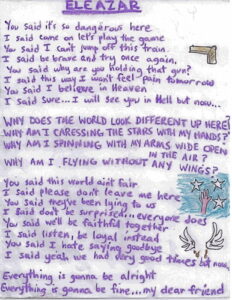 ELEAZAR
You said it's so dangerous here
I said come on let's play the game
You said I can't jump off this train
I said be brave and try once again.
You said why are you holding that gun?
I said this way I won't feel pain tomorrow
You said I believe in Heaven
I said Sure... I will see you in Hell but now...
WHY DOES THE WORLD LOOK DIFFERENT UP HERE?
WHY AM I CARESSING THE STARS WITH MY HANDS?
WHY AM I SPINNING WITH MY ARMS WIDE OPEN
IN THE AIR?
WHY AM I FLYING WITHOUT ANY WINGS?
You said this world ain't fair
I said please don't leave me here
You said they've been lying to us
I said don't be surprised... everyone does
You said we'll be faithful together
I said listen, be loyal instead
You said I hate saying goodbye
I said yeah, we had very good times but now,
Everything is gonna be alright
Everything is gonna be fine... my dear friend